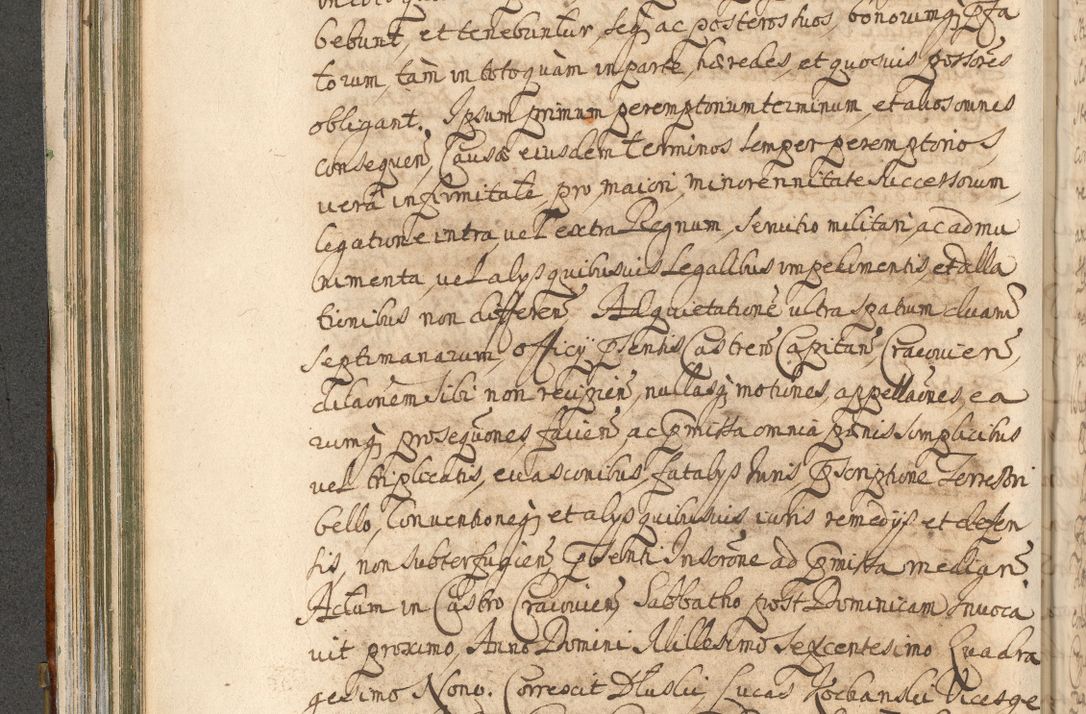 bebunt, et tenebuntur, seq ac posteros suos, bonorumq pfa
torum, tam in toto quam in parte, hæredes, et quosuis possores
obligant. Ipsum primum peremptorium terminum, et alios omnes
consequen, Causæ eiusdem terminos semper peremptorios,
vera infirmitate, pro maiori, minorennitate Successorum,
legatione intra, vel extra Regnum, servitio militari, ac admi
nimenta, vel alys quibusuis Legalibus impedimentis, et dila
tionibus non differen Ad quietatione ultra spatium duam
Septimanarum, Officij psentis Castren Capitan Cracouien,
dilaonem sibi non recipien, nullasq motiones, appellaones, ea
rumq prosequones facien ac pmissa omnia pænis simplicibus
vel triplicatis, euasconibus, fatalys Iuris pscriptione Terrestri
bello, Conventioneq, et alys quibusuis iuris remedijs et defen
sis, non subterfugien, psenti Inscrone ad pmissa median
Actum in Castro Cracouien, Sabbatho post Dominicam Invoca
vit proximo, Anno Domini Millesimo Sexcentesimo Quadra
gesimo Nono. Correxit Lucas Kochanski Vicesge